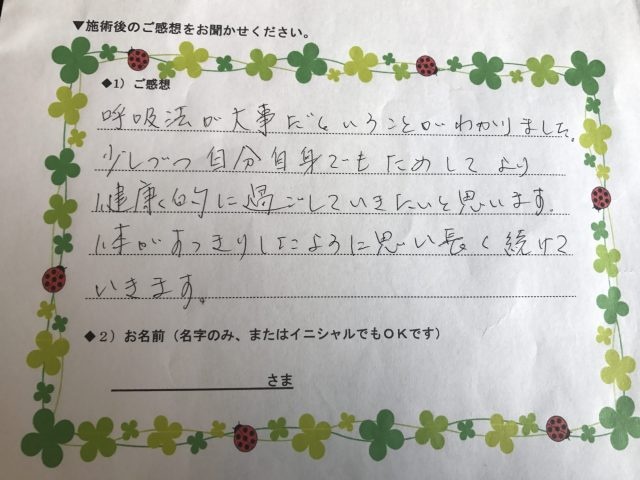 ▼施術後のご感想をお聞かせください。
◆1）ご感想
呼吸法が大事だということがわかりました。
少しづつ自分自身でもためしてより
健康的に過ごしていきたいと思います。
体がすっきりしたように思い長く続けて
いきます。
◆2）お名前（名字のみ、またはイニシャルでもOKです）
さま